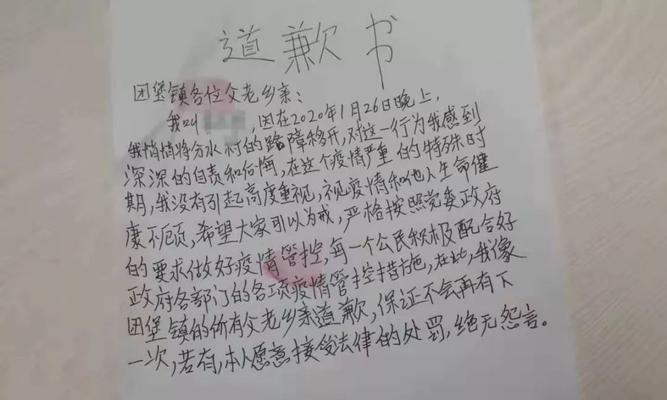 道歉书
团堡镇各位父老乡亲：
我叫 ，因在2020年1月26日晚上，
我悄悄将分水村的路障移开，对这一行为我感到
深深的自责和后悔，在这个疫情严重的特殊时
期，我没有引起高度重视，视疫情和他人生命健
康不顾，希望大家可以为戒，严格按照党委政府
的要求做好疫情管控，每一个公民积极配合好
政府各部门的各项疫情管控措施，在此，我像
团堡镇的所有父老乡亲道歉，保证不会再有下
一次，若有，本人愿意接受法律的处罚，绝无怨言。